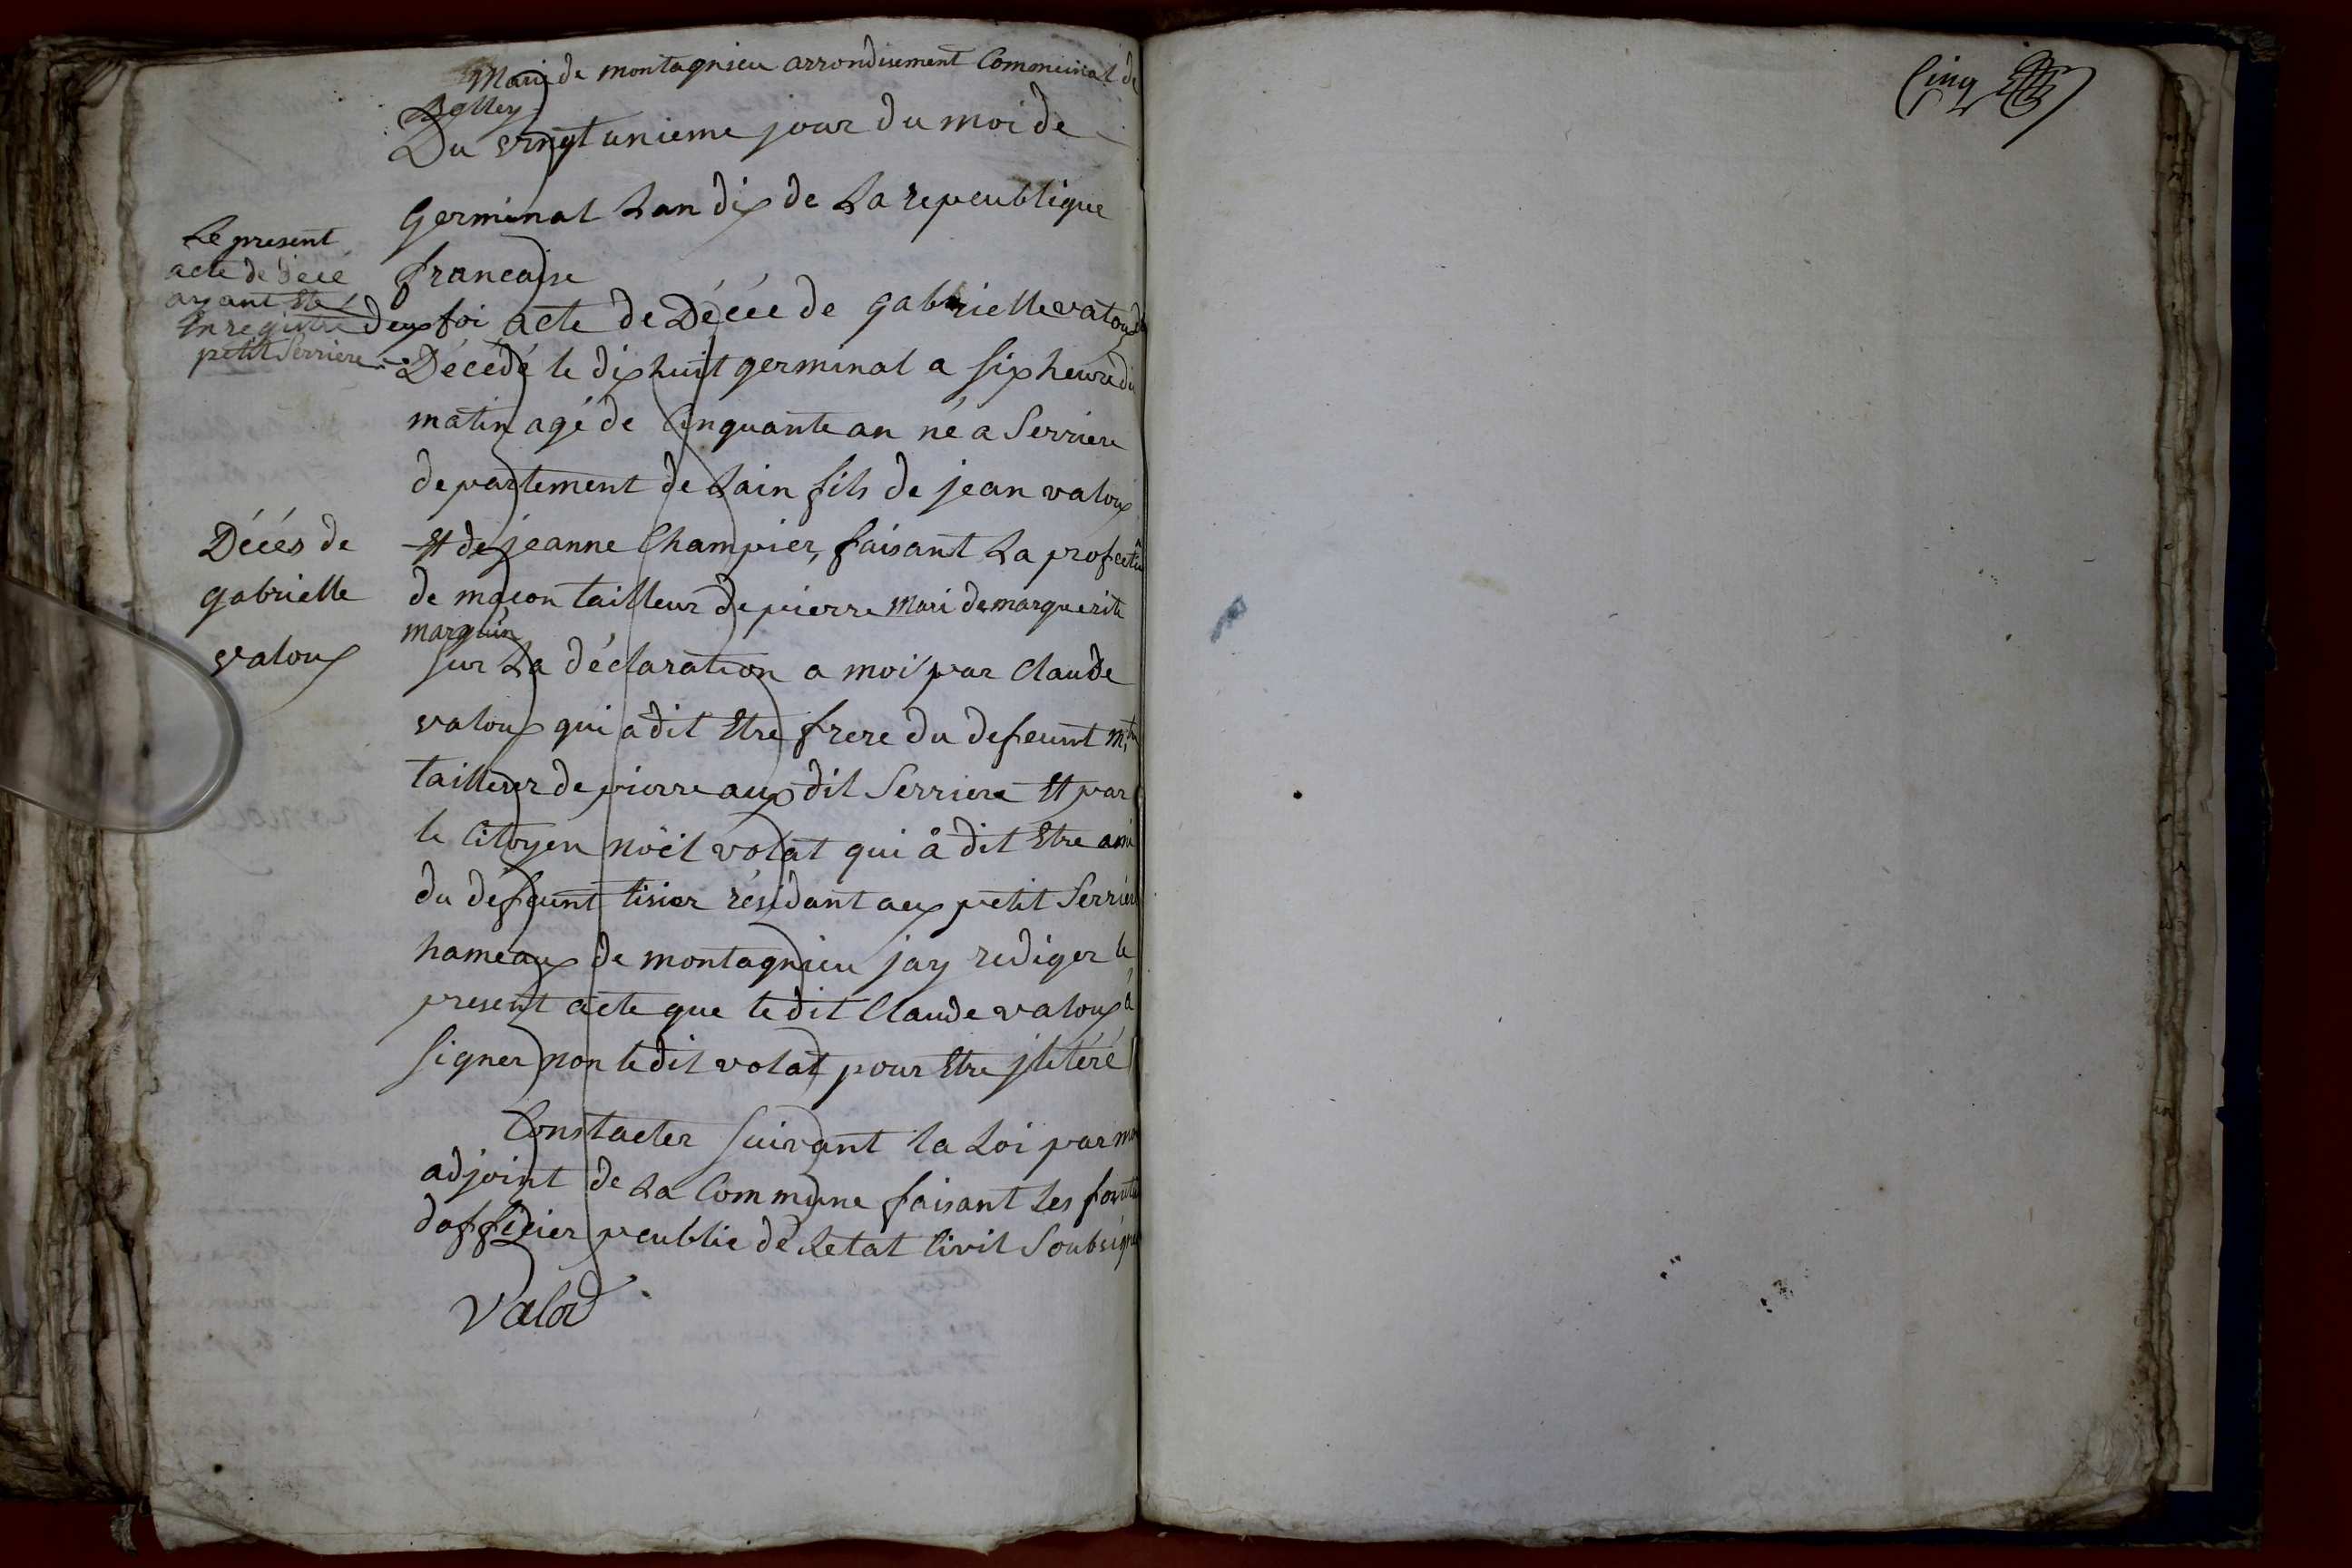 Mairi de montagnieu arrondisement Communal de
Belley
Du vingt unieme jour du moi de
Germinal Lan dix de La repeublique
francaise
Le present
acte de décé
ayant Ete
Enregistré deux foi
petit Serriere
acte de Décée de gabrielle valoux
Décédé le dix huit germinal a six heure du
matin agé de Cinquante an né a Serriere
departement de Lain fils de jean valoux
Et de jeanne Champier, faisant La profeti
de macon tailleur de pierre mari de marguerite
marguin
Décés de
gabrielle
valoux
sur La déclaration a moi par Claude
valoux qui a dit Etre frere du defeunt
tailleur de pierre aux dit Serriere Et par
le Citoyen noël volat qui à dit Etre ami
du défeunt tisier résidant aux petit Serriere
hameaux de montagnieu jay rediger le
present acte que le dit Claude valoux à
signer non le dit volat pour Etre jlitéré
Constacter suivant la Loi par moi
adjoint de La Commune faisant Les
dofficier peublic de Letat Civil Soubsigné
Valod
Cinq